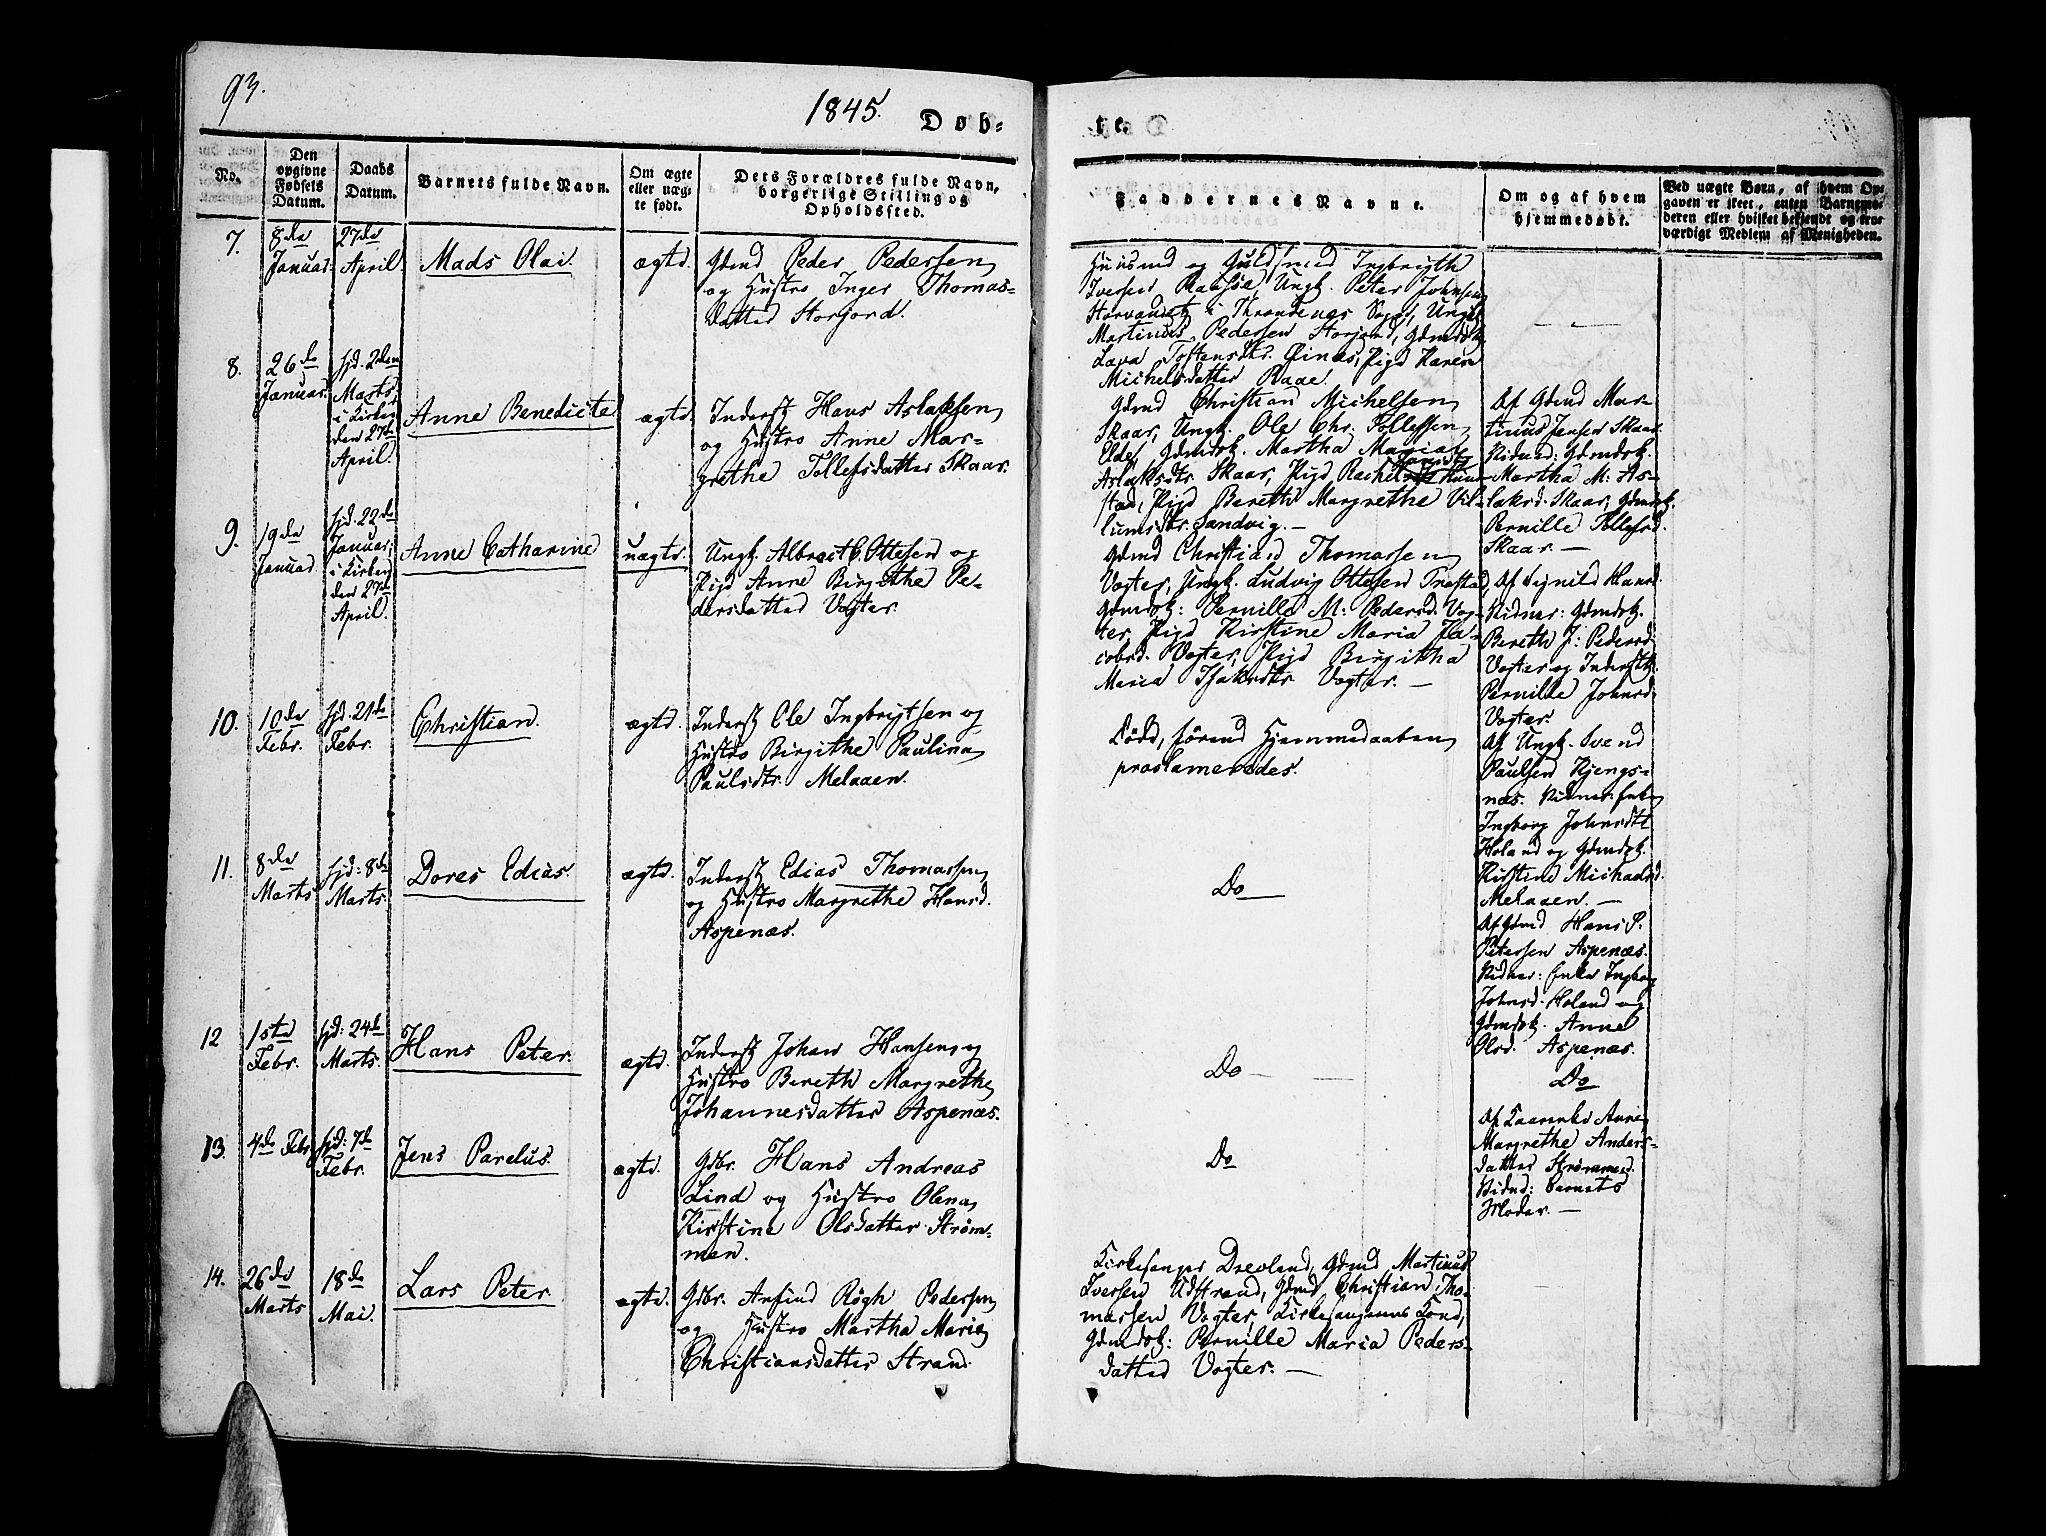 93.
1845.
Døb-
te.
No.
Den
opgivne
Fødsels
Datum.
Daabs
Datum.
Barnets fulde Navn.
Om ægte
eller uæg-
te født.
Dets Forældres fulde Navn,
borgerlige Stilling og
Opholdssted.
Faddernes Navne.
Om og af hvem
hjemmedøbt.
Ved uægte Børn, af hvem Op-
gaven er skeet, enten Barnemo-
deren eller hvilket bekjendt og tro-
værdigt Medlem af Menigheden.
7.
8de
Januar.
27de
April.
Mads Olai.
ægte.
Gdmd Peder Pedersen
og Hustro Inger Thomas-
datter Storjord.
Huusmd og Guldsmed Ingbrigth
Iversen Ungk. Peter Johnsen
Storvandet i Throndenæs Sogn, Ungk.
Martinus Pedersen Storjord, Gdmdsk.
Lava Toftensdtr. Pige Karen
Michelsdatter
8.
26de
Januar.
hjd. 2den
Marts,
i Kirken
den 27de
April.
Anne Benedicte
ægte.
Inderst Hans Aslaksen
og Hustro Anne Mar-
grethe Tollefsdatter Skaar.
Gdmd Christian Michelsen
Skaar, Ungk. Ole Chr. Tollefsen
Elde, Gdmdsk. Martha Maria
Aslaksdtr Skaar, Pige Rachel
stad, Pige Bereth Margrethe Vil-
lumsdtr. Sandvig. —
Af Gdmd Mar-
tinus Jensen Skaar.
Vidner: Gdmdsk.
Martha M: As-
laksd. Skaar, Gdmdsk.
Pernille Tollefsd.
Skaar. —
9.
19de
Januar
hjd. 22de
Januar,
i Kirken
den 27de
April.
Anne Catharine
uægte.
Ungk. Albregt C. Ottesen og
Pige Anne Birgithe Pe-
dersdatter Vogter.
Gdmd Christian Thomassen
Vogter, Ungk. Ludvig Ottesen
Gdmdsk: Pernille M: Pedersd. Vog-
ter, Pige Kirstine Maria Ja-
cobsd. Vogter, Pige Birgitha
Maria Vogter. —
Af Signild Hansd.
Vidner: Gdmdsk.
Bereth J: Pedersd.
Vogter og Inderstk.
Pernille Johnsd.
Vogter.
10.
10de
Febr.
hjd. 21de
Febr.
Christian.
ægte.
Inderst Ole Ingbrigtsen og
Hustro Birgithe Paulina
Paulsdtr. Melaaen.
Død, førend Hjemmedaaben
proclameredes.
Af Ungk. Svend
Paulsen Kjengs-
næs. Vidner: Enke
Ingborg Johnsdtr
Holand og Gdmdsk.
Kirstine Michaelsd.
Melaaen. —
11.
8de
Marts
hjd: 8de
Marts.
Dores Edias.
ægte.
Inderst Edias Thomassen
og Hustro Margrethe Hansd.
Aspenæs.
Do
Af Gdmd Hans P.
Petersen Aspenæs.
Vidner: Enke Ingborg
Johnsd. Holand og
Gdmdsk. Anne
Olsd. Aspenæs.
12
1ste
Febr.
hjd: 24de
Marts.
Hans Peter.
ægte.
Inderst Johan Hansen og
Hustro Bereth Margrethe
Johannesdatter Aspenæs.
Do — —
Do
13.
4de Febr.
hjd: 7de
Febr.
Jens Parelus.
ægte.
Gdbr. Hans Andreas
Lind og Hustro Olena
Kirstine Olsdatter Strøm-
men.
Do
Af Anne
Margrethe Anders-
datter Strømmen.
Vidne: Barnets
Moder. —
14.
26de
Marts
18de
Mai.
Lars Peter.
ægte.
Gdbr. Arfind Røgh Pedersen
og Hustro Martha Marie
Christiansdatter Strand.
Kirkesanger Drevland, Gdmd Martinus
Iversen Udstrand, Gdmd Christian Tho-
massen Vogter, Kirkesangerens Kone,
Gdmdsk: Pernille Maria Peders-
datter Vogter. —